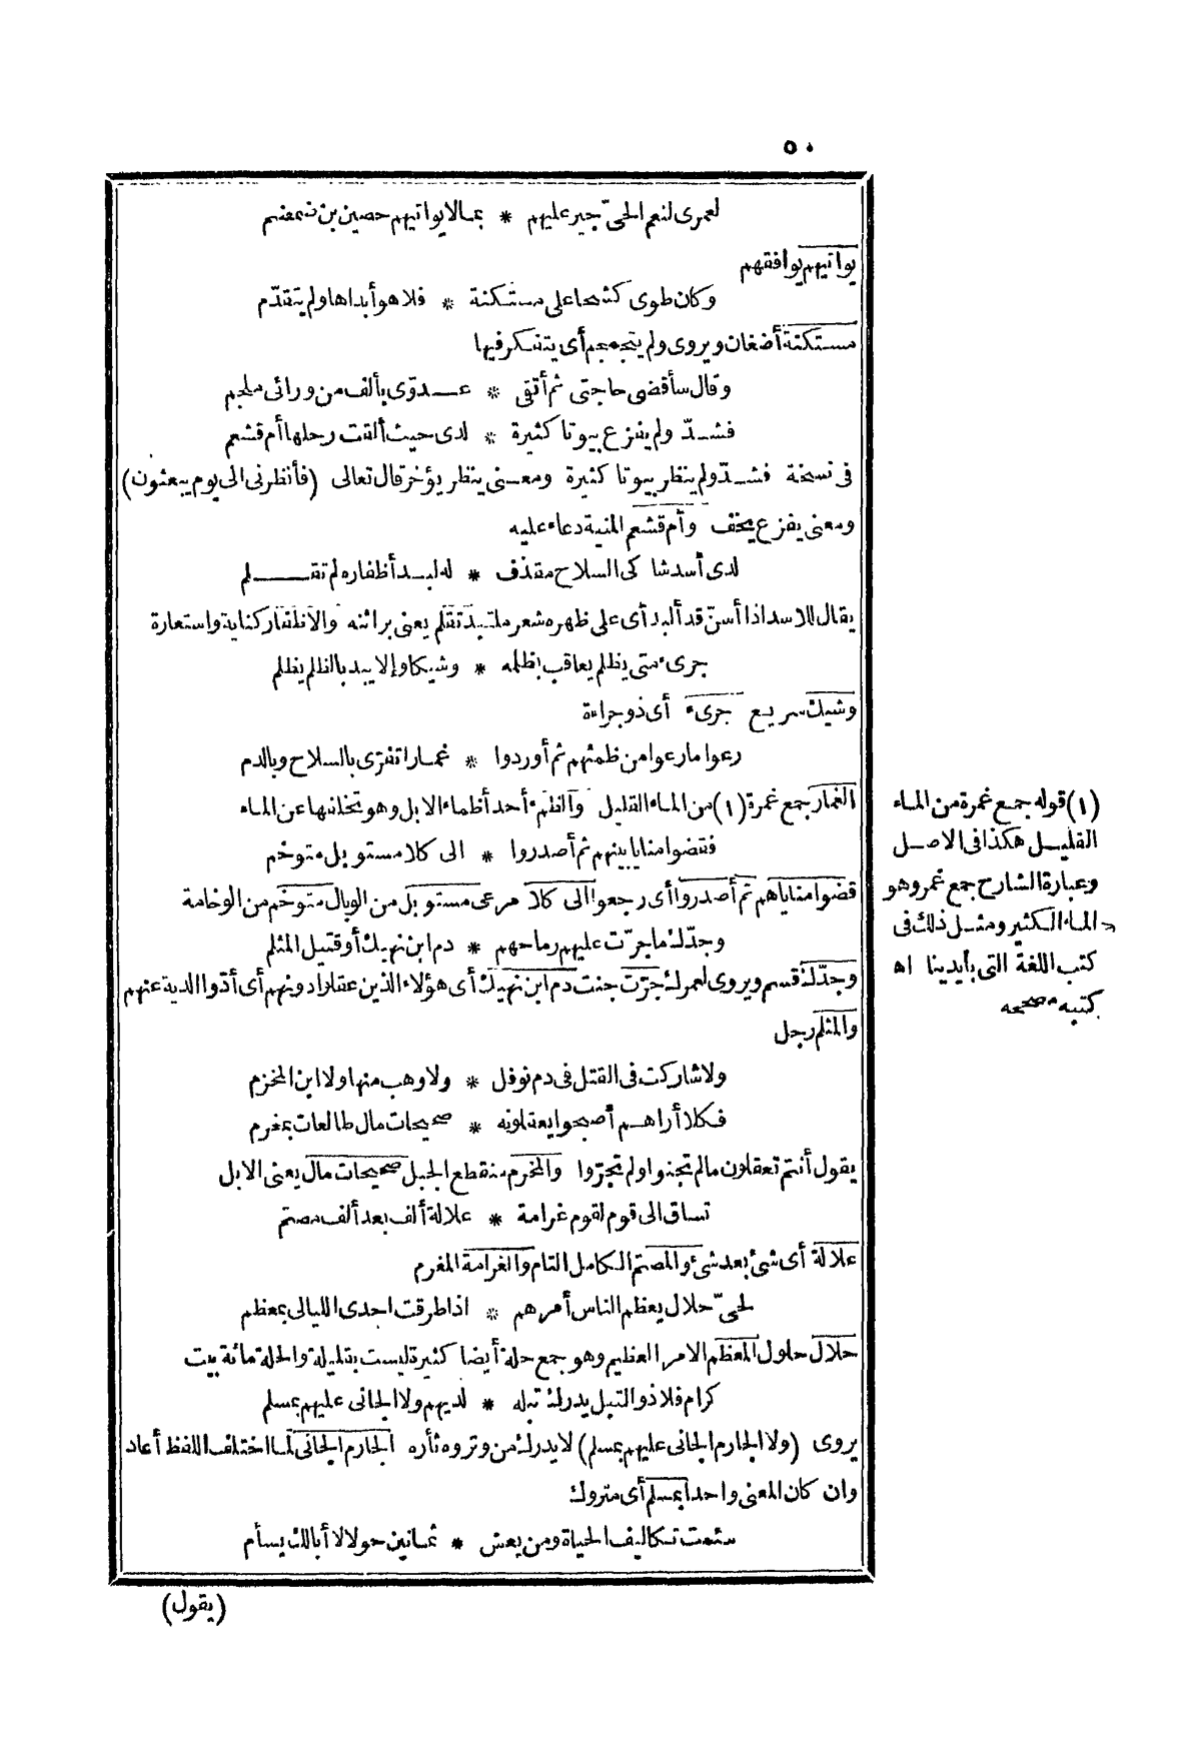 ٥٠
لعمرى لنعم الحىّ جير عليهم * بما لا يواتيهم حصين بن ضمضم
يواتيهم يوافقهم
وكان طوى كشحا على مستكنة * فلا هو أبداها ولم يتقدّم
مستكنة أضغان ويروى ولم يتجمجم أى يتفكر فيها
وقال سأقضى حاجتى ثم أتقى * عدوّى بألف من ورائى ملجم
فشدّ ولم يفزع بيوتا كثيرة * لدى حيث ألقت رحلها أم قشعم
فى نسخة فشدّ ولم ينظر بيوتا كثيرة ومعنى ينظر يؤخر قال تعالى (فأنظرنى الى يوم يبعثون)
ومعنى يفزع يخف وأم قشعم المنية دعاء عليه
لدى أسد شاكى السلاح مقذف * له لبد أظفاره لم تقلم
يقال للاسد اذا أسنّ قد ألبد أى على ظهره شعر متلبد تقلم يعنى براثنه والاظفار كناية واستعارة
جرىء متى يظلم يعاقب بظلمه * وشيكا وإلا يبد بالظلم يظلم
وشيك سريع جرىء أى ذو جراءة
رعوا ما رعوا من ظمئهم ثم أوردوا * غمارا تفرّى بالسلاح وبالدم
الغمار جمع غمرة (١) من الماء القليل والظمء أحد أظماء الابل وهو تخلفها عن الماء
فقضوا منايا بينهم ثم أصدروا * الى كلا مستوبل متوخم
قضوا مناياهم ثم أصدروا أى رجعوا الى كلا مرعى مستوبل من الوبال متوخم من الوخامة
وجدّك ما جرّت عليهم رماحهم * دم ابن نهيك أو قتيل المثلم
وجدّك قسم ويروى لعمرك جرّت جنت دم ابن نهيك أى هؤلاء الذين عقلوا دونهم أى أدّوا الدية عنهم
والمثلم رجل
ولا شاركت فى القتل فى دم نوفل * ولا وهب منها ولا ابن المخزم
فكلا أراهم أصبحوا يعقلونه * صحيحات مال طالعات بمخرم
يقول أنتم تعقلون مالم تجنوا ولم تجرّوا والمخرم منقطع الجبل صحيحات مال يعنى الابل
تساق الى قوم لقوم غرامة * علالة ألف بعد ألف مصتم
علالة أى شئ بعد شئ والمصتم الكامل التام والغرامة المغرم
لحىّ حلال يعظم الناس أمرهم * اذا طرقت احدى الليالى بمعظم
حلال حلول المعظم الامر العظيم وهو جمع حلة أيضا كثيرة ليست بقليلة والحلة مائة بيت
كرام فلا ذو التبل يدرك تبله * لديهم ولا الجانى عليهم بمسلم
يروى (ولا الجارم الجانى عليهم بمسلم) لا يدرك من وتروه ثأره الجارم الجانى لما اختلف اللفظ أعاد
وان كان المعنى واحدا بمسلم أى متروك
سئمت تكاليف الحياة ومن يعش * ثمانين حولا لا أبالك يسأم
(يقول)
(١) قوله جمع غمرة من الماء
القليل هكذا فى الاصل
وعبارة الشارح جمع غمر وهو
الماء الكثير ومثل ذلك فى
كتب اللغة التى بأيدينا اه
كتبه مصححه